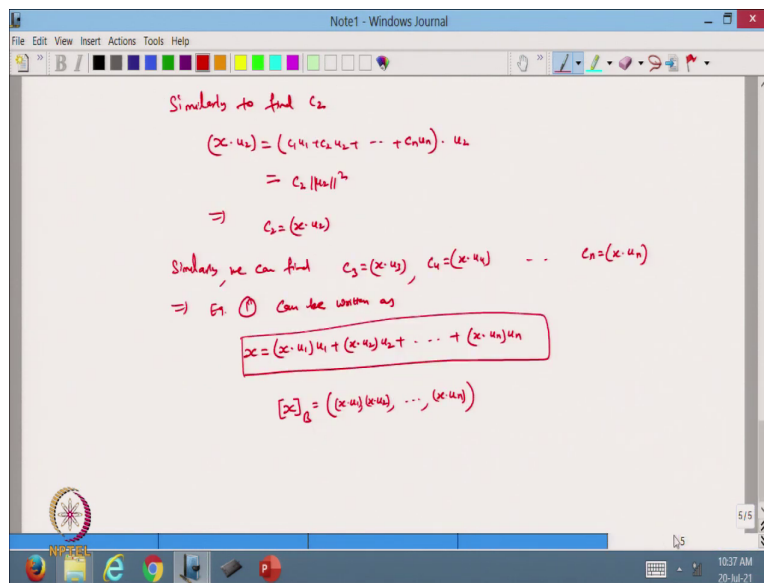 Note1 - Windows Journal
File Edit View Insert Actions Tools Help
B I
Similarly to find C2
(x·u2) = (c1u1+c2u2+ -- +cnun)· u2
= c2 ||u2||^2
⇒ c2=(x·u2)
Similarly, we can find c3=(x·u3), c4=(x·u4) -- cn=(x·un)
⇒ Eq. ① can be written as
x=(x·u1)u1+(x·u2)u2+ . -- + (x·un)un
[x]B = ((x·u1)(x·u2), ..., (x·un))
5/5
NPTEL
5
10:37 AM
20-Jul-21